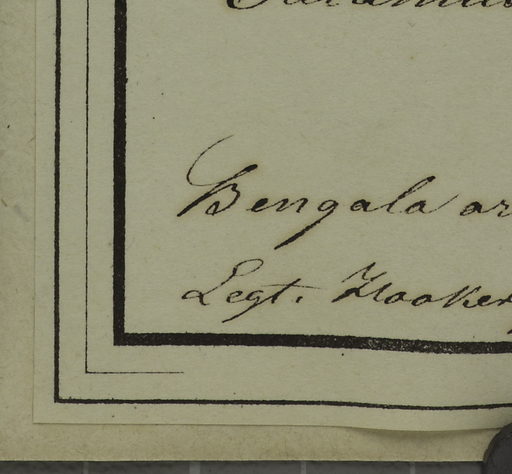 Bengala or
Legt. Hooker